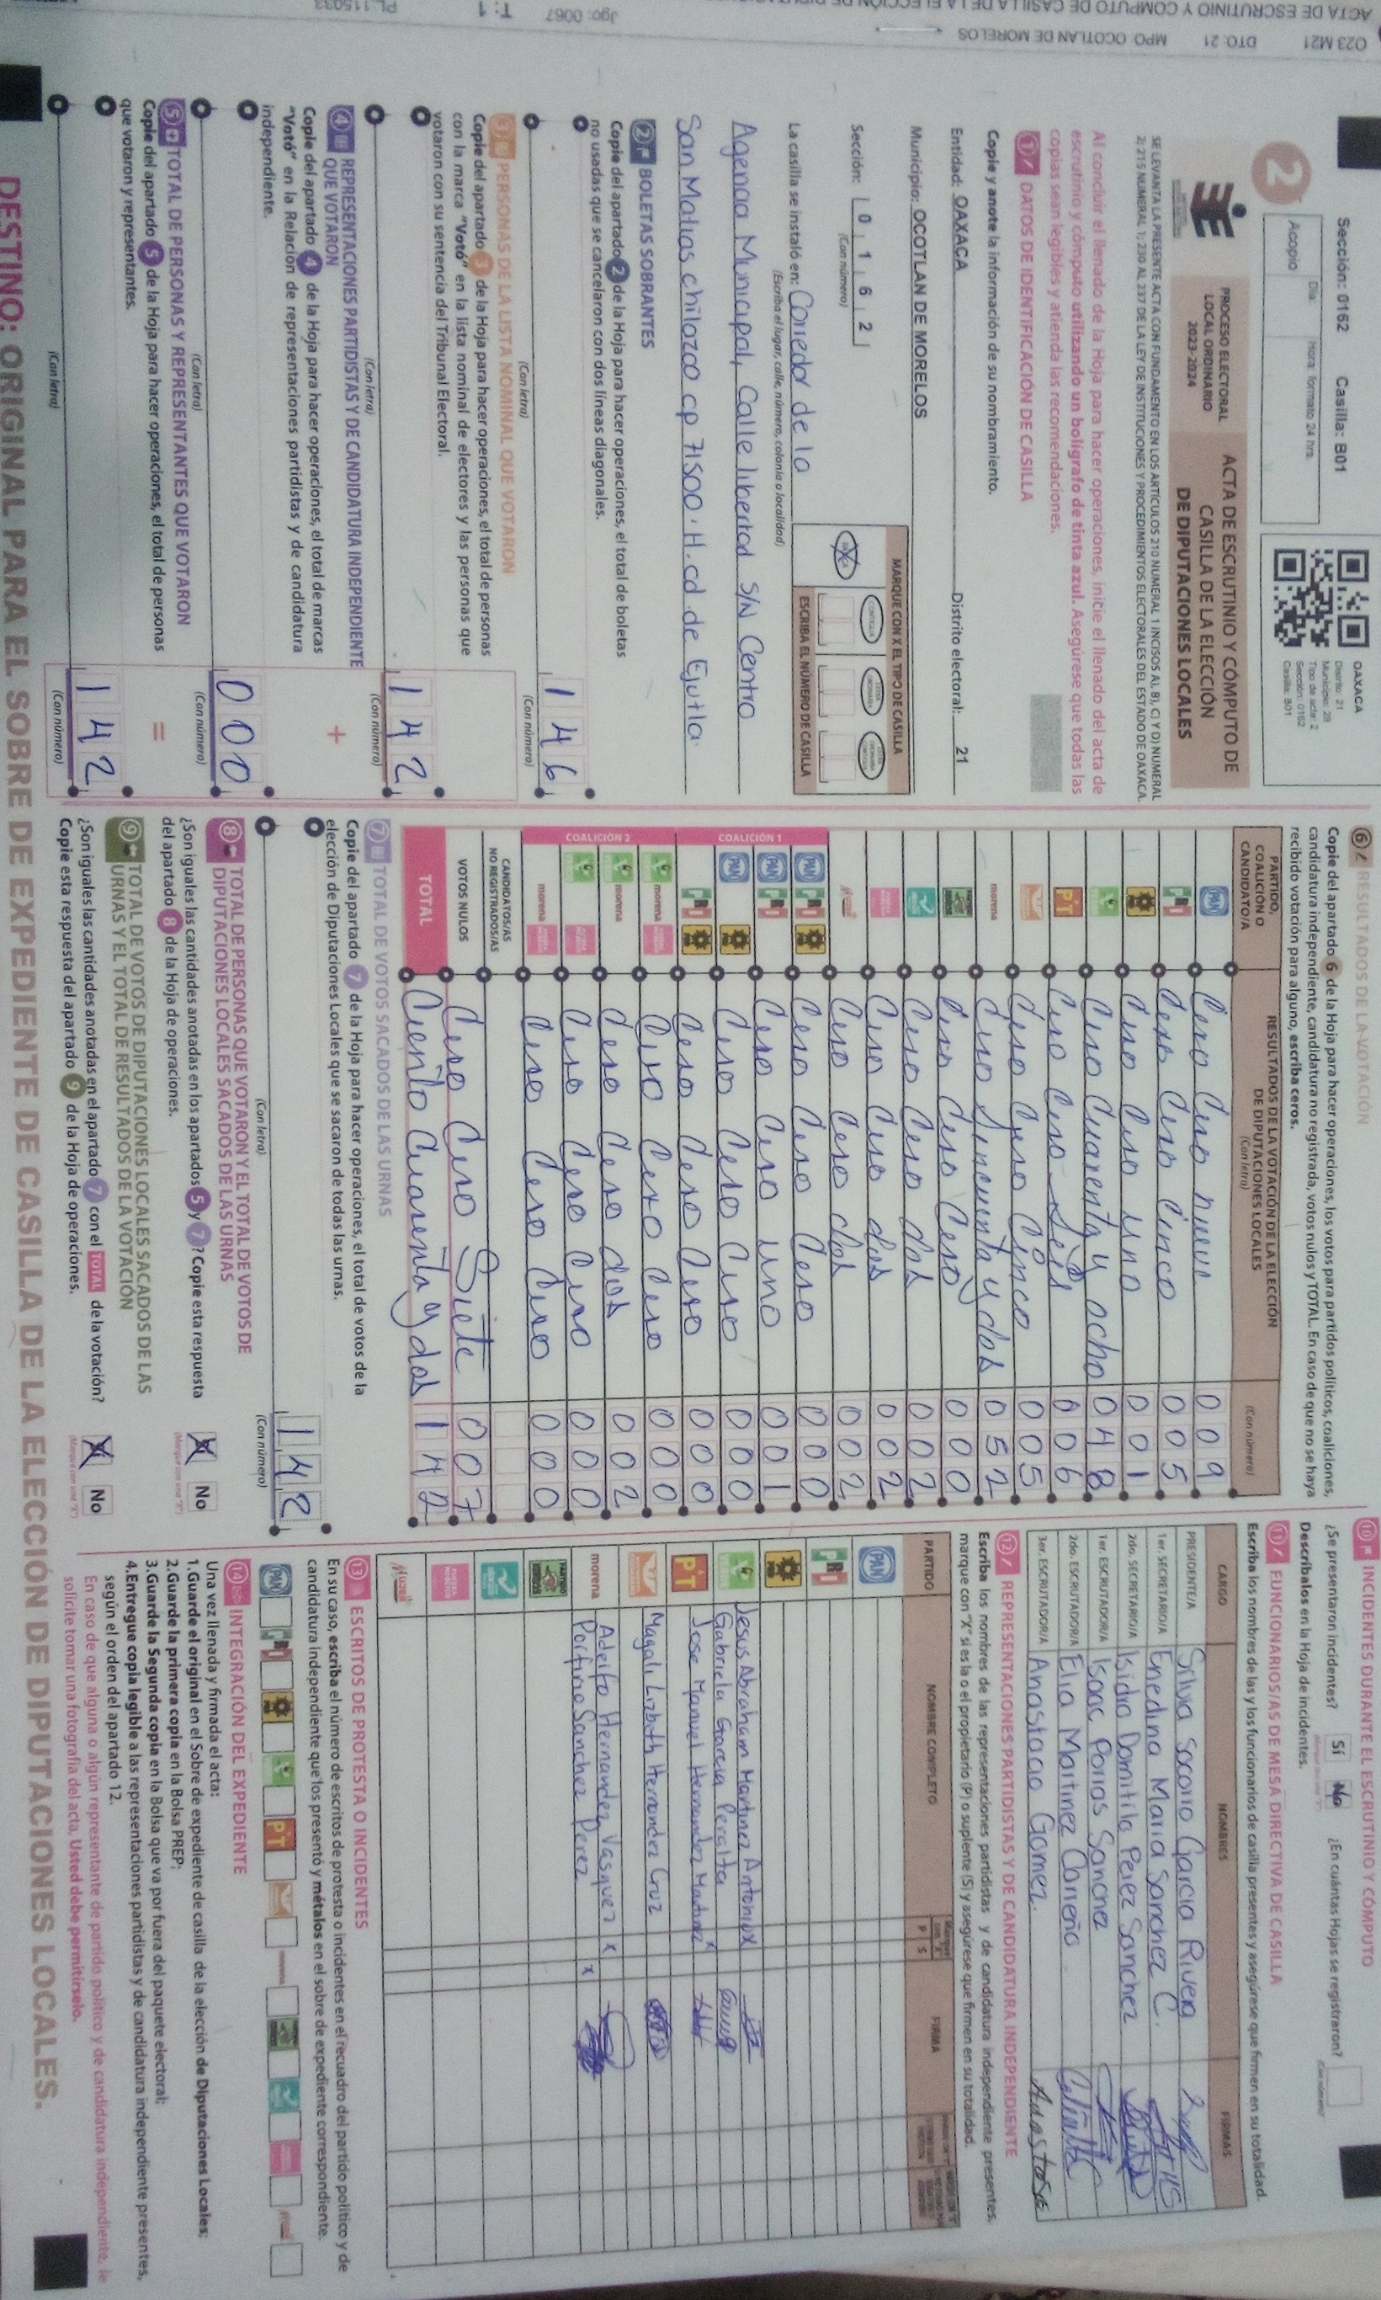 ACTA DE ESCRUTINIO Y CÓMPUTO DE CASILLA DE LA ELECCIÓN DE
O23 M21 DTO: 21 MPO: OCOTLAN DE MORELOS
Jgo: 0067 T: 1 PL: 115033
Sección: 0162 Casilla: B01
2
Acopio
Día: Hora: formato 24 hrs.
OAXACA
Distrito: 21
Municipio: 29
Tipo de acta: 2
Sección: 0162
Casilla: B01
PROCESO ELECTORAL
LOCAL ORDINARIO
2023-2024
ACTA DE ESCRUTINIO Y CÓMPUTO DE
CASILLA DE LA ELECCIÓN
DE DIPUTACIONES LOCALES
SE LEVANTA LA PRESENTE ACTA CON FUNDAMENTO EN LOS ARTÍCULOS 210 NUMERAL 1 INCISOS A), B), C) Y D) NUMERAL
2; 215 NUMERAL 1; 230 AL 237 DE LA LEY DE INSTITUCIONES Y PROCEDIMIENTOS ELECTORALES DEL ESTADO DE OAXACA.
Al concluir el llenado de la Hoja para hacer operaciones, inicie el llenado del acta de
escrutinio y cómputo utilizando un bolígrafo de tinta azul. Asegúrese que todas las
copias sean legibles y atienda las recomendaciones.
1 DATOS DE IDENTIFICACIÓN DE CASILLA
Copie y anote la información de su nombramiento.
Entidad: OAXACA Distrito electoral: 21
Municipio: OCOTLAN DE MORELOS
Sección: 0 1 6 2
(Con número)
MARQUE CON X EL TIPO DE CASILLA
ESCRIBA EL NÚMERO DE CASILLA
La casilla se instaló en: Corredor de la
(Escriba el lugar, calle, número, colonia o localidad)
Agencia Municipal, Calle libertad S/N Centro
San Matias chilazoa cp 71500. H. cd de Ejutla.
2 BOLETAS SOBRANTES
Copie del apartado 2 de la Hoja para hacer operaciones, el total de boletas
no usadas que se cancelaron con dos líneas diagonales.
1 4 6
(Con letra) (Con número)
3 PERSONAS DE LA LISTA NOMINAL QUE VOTARON
Copie del apartado 3 de la Hoja para hacer operaciones, el total de personas
con la marca "Votó" en la lista nominal de electores y las personas que
votaron con su sentencia del Tribunal Electoral.
1 4 2
(Con letra) (Con número)
4 REPRESENTACIONES PARTIDISTAS Y DE CANDIDATURA INDEPENDIENTE
QUE VOTARON
Copie del apartado 4 de la Hoja para hacer operaciones, el total de marcas
"Votó" en la Relación de representaciones partidistas y de candidatura
independiente.
+
0 0 0
(Con letra) (Con número)
5 TOTAL DE PERSONAS Y REPRESENTANTES QUE VOTARON
Copie del apartado 5 de la Hoja para hacer operaciones, el total de personas
que votaron y representantes.
=
1 4 2
(Con letra) (Con número)
6 RESULTADOS DE LA VOTACIÓN
Copie del apartado 6 de la Hoja para hacer operaciones, los votos para partidos políticos, coaliciones,
candidatura independiente, candidatura no registrada, votos nulos y TOTAL. En caso de que no se haya
recibido votación para alguno, escriba ceros.
PARTIDO, COALICIÓN O CANDIDATO/A
RESULTADOS DE LA VOTACIÓN DE LA ELECCIÓN DE DIPUTACIONES LOCALES
(Con letra) (Con número)
PAN Cero Cero nueve 0 0 9
PRI Cero Cero Cinco 0 0 5
Cero Cero uno 0 0 1
Cero Cuarenta y ocho 0 4 8
PT Cero Cero Seis 0 0 6
Cero Cero Cinco 0 0 5
morena Cero Sincuenta y dos 0 5 2
Cero Cero Cero 0 0 0
Cero Cero dos 0 0 2
Cero Cero dos 0 0 2
Cero Cero dos 0 0 2
COALICIÓN 1
PAN PRI Cero Cero Cero 0 0 0
PAN PRI Cero Cero uno 0 0 1
PAN Cero Cero Cero 0 0 0
PRI Cero Cero Cero 0 0 0
COALICIÓN 2
morena Cero Cero Cero 0 0 0
morena Cero Cero dos 0 0 2
Cero Cero Cero 0 0 0
morena Cero Cero Cero 0 0 0
CANDIDATOS/AS NO REGISTRADOS/AS
VOTOS NULOS Cero Cero Siete 0 0 7
TOTAL Ciento Cuarenta y dos 1 4 2
7 TOTAL DE VOTOS SACADOS DE LAS URNAS
Copie del apartado 7 de la Hoja para hacer operaciones, el total de votos de la
elección de Diputaciones Locales que se sacaron de todas las urnas.
1 4 2
(Con letra) (Con número)
8 TOTAL DE PERSONAS QUE VOTARON Y EL TOTAL DE VOTOS DE
DIPUTACIONES LOCALES SACADOS DE LAS URNAS
¿Son iguales las cantidades anotadas en los apartados 5 y 7? Copie esta respuesta
del apartado 8 de la Hoja de operaciones.
No
9 TOTAL DE VOTOS DE DIPUTACIONES LOCALES SACADOS DE LAS
URNAS Y EL TOTAL DE RESULTADOS DE LA VOTACIÓN
¿Son iguales las cantidades anotadas en el apartado 7 con el TOTAL de la votación?
Copie esta respuesta del apartado 9 de la Hoja de operaciones.
No
10 INCIDENTES DURANTE EL ESCRUTINIO Y CÓMPUTO
¿Se presentaron incidentes? Sí No ¿En cuántas Hojas se registraron?
Descríbalos en la Hoja de incidentes.
11 FUNCIONARIOS/AS DE MESA DIRECTIVA DE CASILLA
Escriba los nombres de las y los funcionarios de casilla presentes y asegúrese que firmen en su totalidad.
CARGO NOMBRES FIRMAS
PRESIDENTE/A Silvia Socorro Garcia Rivera
1er. SECRETARIO/A Enedina Maria Sanchez C.
2do. SECRETARIO/A Isidra Domitila Perez Sanchez
1er. ESCRUTADOR/A Isaac Porras Sanchez
2do. ESCRUTADOR/A Elia Martinez Carreño
3er. ESCRUTADOR/A Anastacio Gomez.
12 REPRESENTACIONES PARTIDISTAS Y DE CANDIDATURA INDEPENDIENTE
Escriba los nombres de las representaciones partidistas y de candidatura independiente presentes,
marque con "X" si es la o el propietario (P) o suplente (S) y asegúrese que firmen en su totalidad.
PARTIDO NOMBRE COMPLETO P S FIRMA
PAN
PRI
Jesus Abraham Martinez Antonio x
Gabriela Garcia Peralta
PT Jose Manuel Hernandez Martinez x
Magali Lizbeth Hernandez Cruz
morena Adelfo Hernandez Vasquez x
Porfirio Sanchez Perez x
13 ESCRITOS DE PROTESTA O INCIDENTES
En su caso, escriba el número de escritos de protesta o incidentes en el recuadro del partido político y de
candidatura independiente que los presentó y métalos en el sobre de expediente correspondiente.
PAN PRI PT morena
14 INTEGRACIÓN DEL EXPEDIENTE
Una vez llenada y firmada el acta:
1.Guarde el original en el Sobre de expediente de casilla de la elección de Diputaciones Locales;
2.Guarde la primera copia en la Bolsa PREP;
3.Guarde la Segunda copia en la Bolsa que va por fuera del paquete electoral;
4.Entregue copia legible a las representaciones partidistas y de candidatura independiente presentes,
según el orden del apartado 12.
En caso de que alguna o algún representante de partido político y de candidatura independiente, le
solicite tomar una fotografía del acta, Usted debe permitírselo.
DESTINO: ORIGINAL PARA EL SOBRE DE EXPEDIENTE DE CASILLA DE LA ELECCIÓN DE DIPUTACIONES LOCALES.